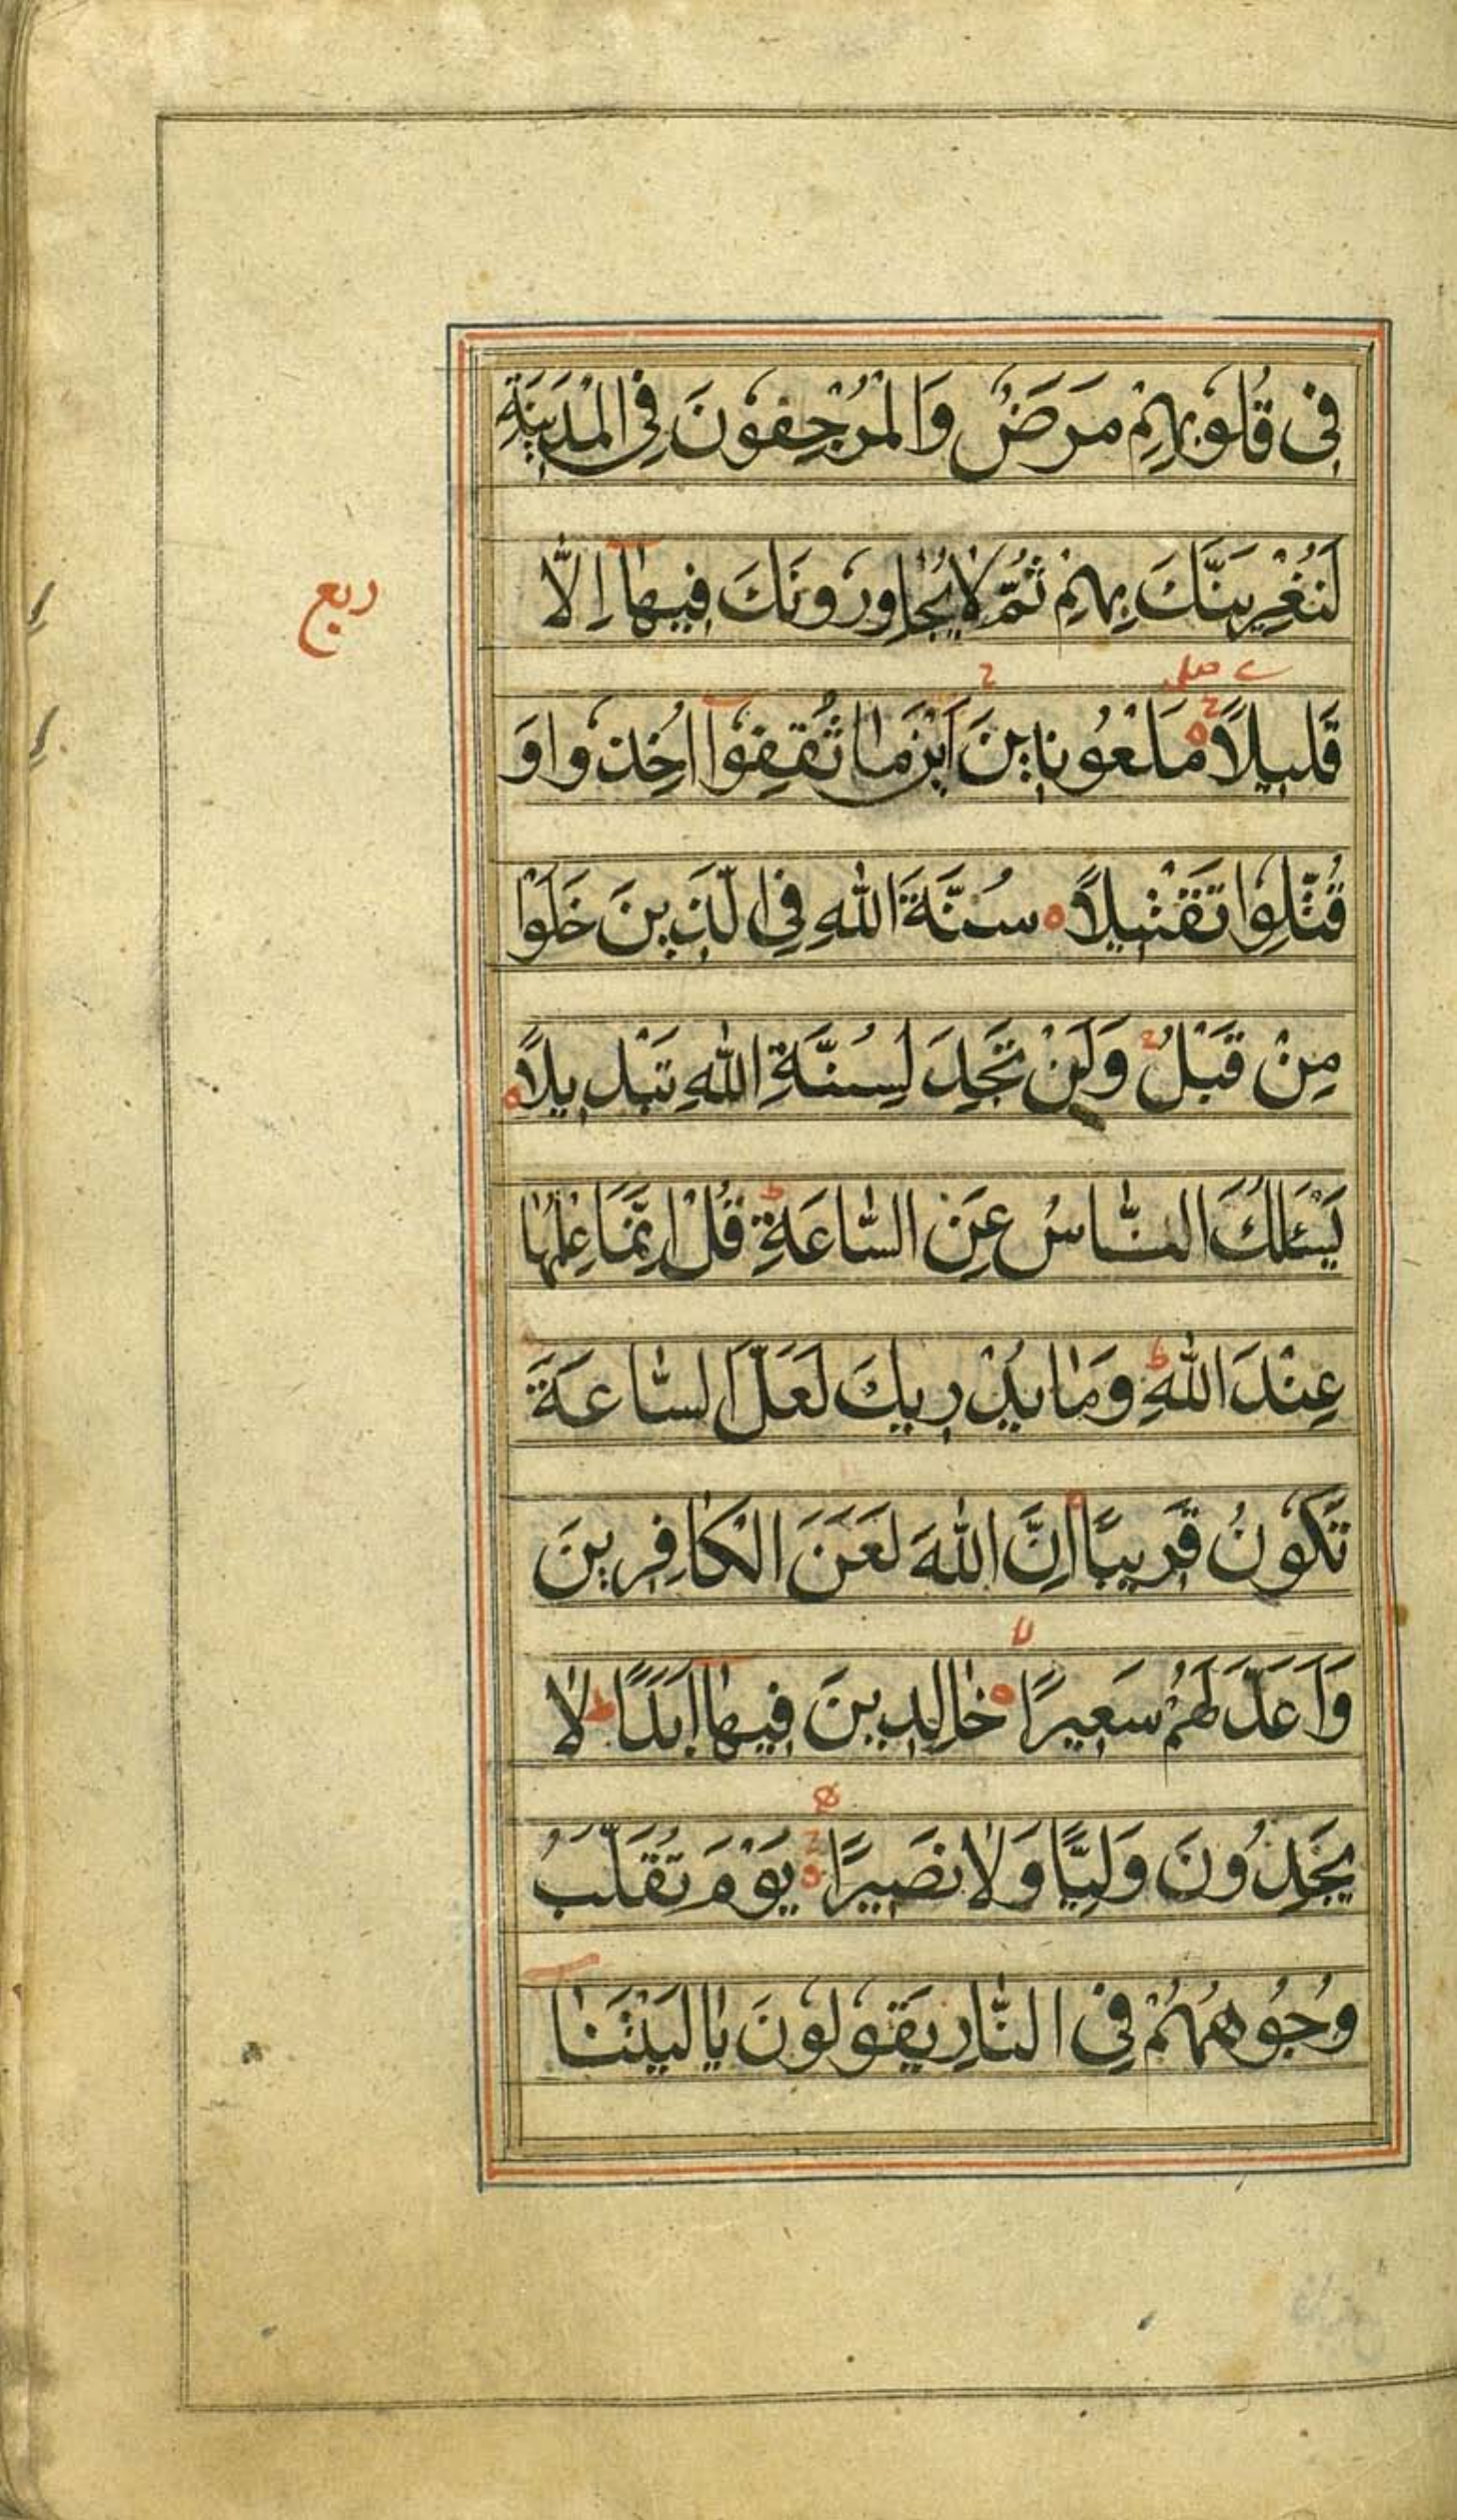 فِى قُلُوبِهِمْ مَرَضٌ وَالْمُرْجِفُونَ فِى الْمَدِينَةِ
لَنُغْرِيَنَّكَ بِهِمْ ثُمَّ لَا يُجَاوِرُونَكَ فِيهَا إِلَّا
ربع
قَلِيلًا مَلْعُونِينَ أَيْنَمَا ثُقِفُوا أُخِذُوا وَ
قُتِّلُوا تَقْتِيلًا سُنَّةَ اللهِ فِى الَّذِينَ خَلَوْا
مِنْ قَبْلُ وَلَنْ تَجِدَ لِسُنَّةِ اللهِ تَبْدِيلًا
يَسْئَلُكَ النَّاسُ عَنِ السَّاعَةِ قُلْ إِنَّمَا عِلْمُهَا
عِنْدَ اللهِ وَمَا يُدْرِيكَ لَعَلَّ السَّاعَةَ
تَكُونُ قَرِيبًا إِنَّ اللهَ لَعَنَ الْكَافِرِينَ
وَأَعَدَّ لَهُمْ سَعِيرًا خَالِدِينَ فِيهَا أَبَدًا لَا
يَجِدُونَ وَلِيًّا وَلَا نَصِيرًا يَوْمَ تُقَلَّبُ
وُجُوهُهُمْ فِى النَّارِ يَقُولُونَ يَا لَيْتَنَا